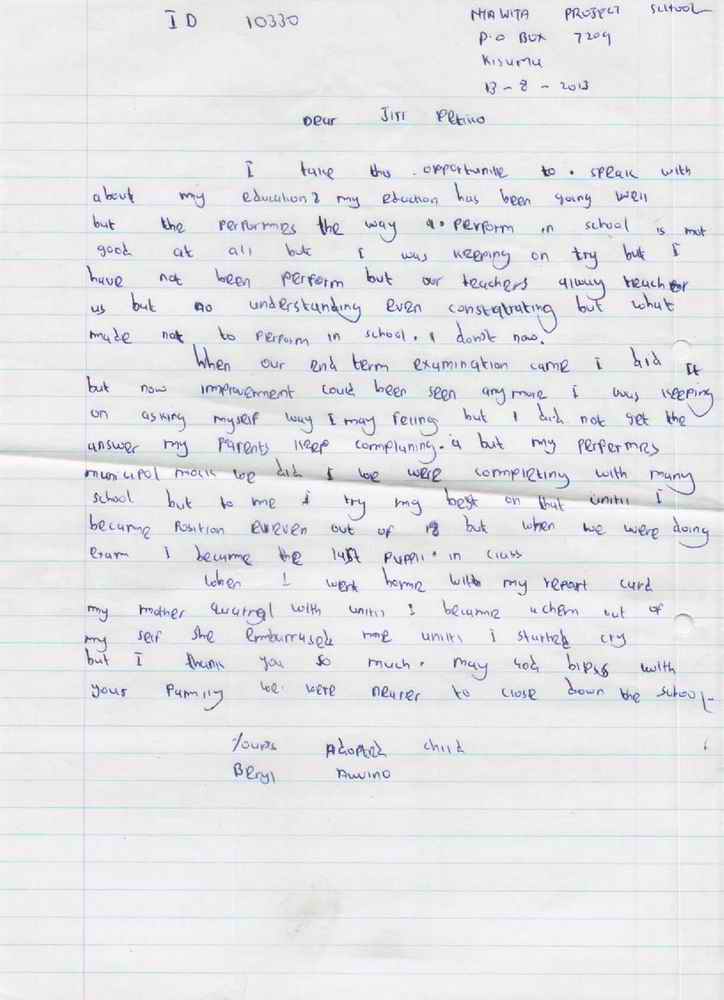 ID 10330
NTAWITA PROJECT SCHOOL
P.O BOX 7209
Kisumu
13-8-2013
Dear Jiri
I take this opportunite to speak with
about my education? my eduction has been going well
but the performes the way perform in school is not
good at all but I was keeping on try but I
have not been perform but our teachers alway teacher
us but no understanding even but what
made not to perform in school. I don't now.
When our end term examination came I did it
but now improvement could been seen any more I was keeping
on asking myself way I may feling but I did not get the
answer my parents keep complaning. a but my performes
municipol mock we did I we were completing with many
school but to me I try my best on that untill I
became position eleven out of 18 but when we were doing
exam I became the last puppil in class
When I went home with my report card
my mother quarrel with untill I became achem out of
my self she emburrased me untill I started cry
but I thank you so much. may god bless with
your pamily we were nearer to close down the school-
Yours Adopted child
Beryl Awino